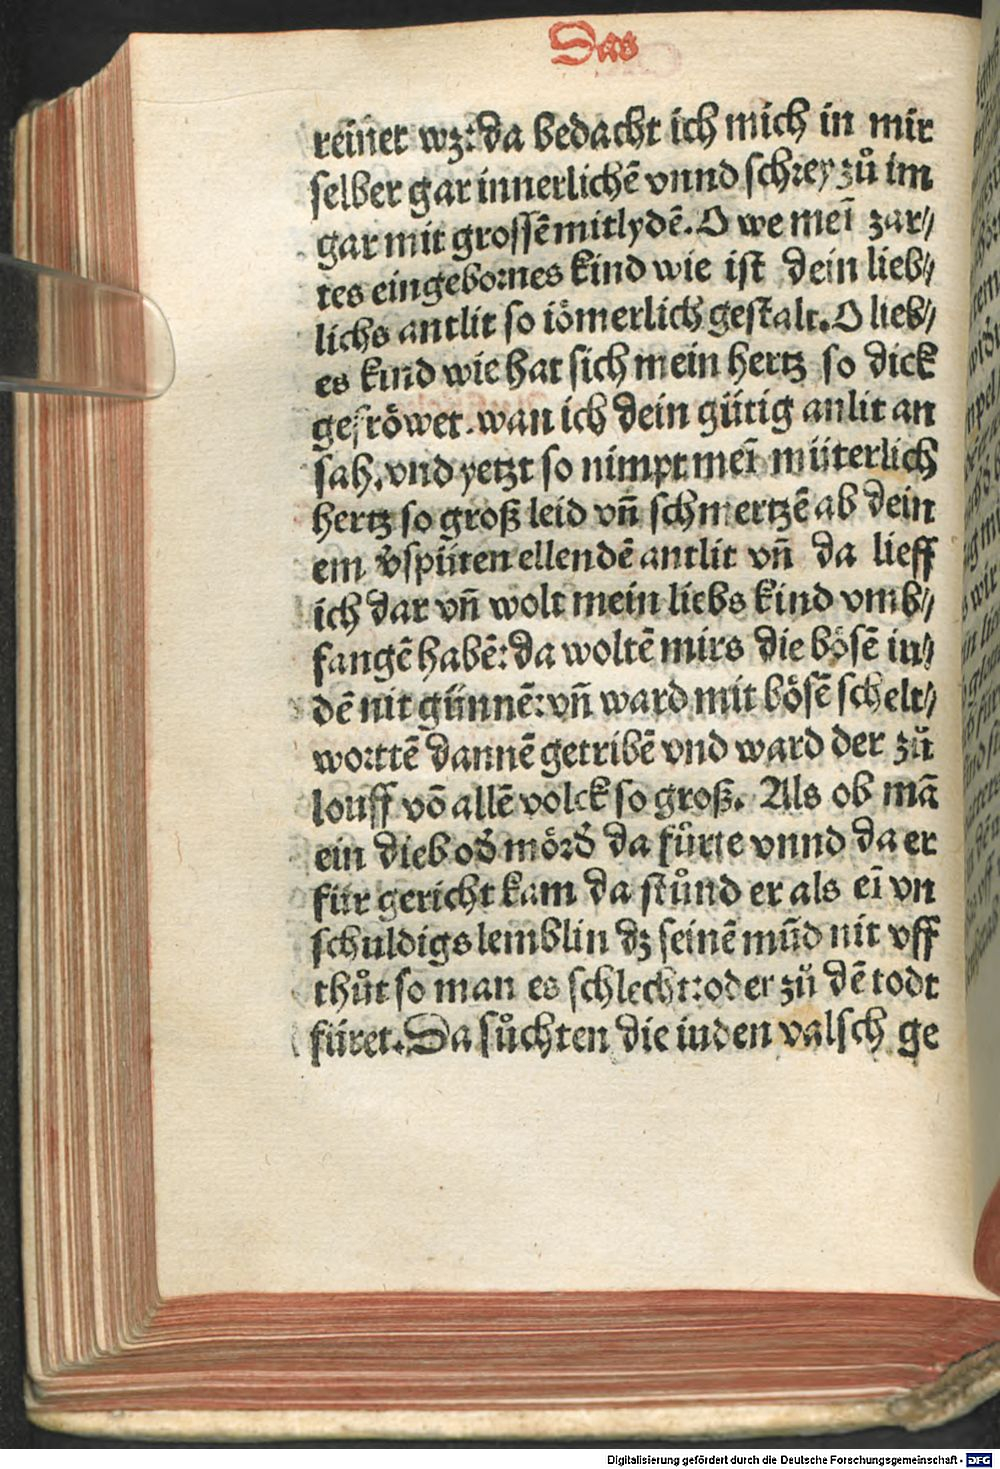 Das
reiner wz: da bedacht ich mich in mir
selber gar innerlichē vnnd schrey zů im
gar mit grossē mitlydē. O we meī zar//
tes eingebornes kind wie ist dein lieb//
lichs antlit so iömerlich gestalt. O lieb//
es kind wie hat sich mein hertz so dick
gefröwet. wan ich dein gütig anlit an
sah, vnd yetzt so nimpt meī müterlich
hertz so groß leid vn̄ schmertzē ab dein
em v̓spüten ellendē antlit vn̄ da lieff
ich dar vn̄ wolt mein liebs kind vmb//
fangē habē: da woltē mirs die bösē iu//
dē nit günnē: vn̄ ward mit bösē schelt//
worttē dannē getribē vnd ward der zů
louff vō allē volck so groß. Als ob mā
ein dieb od̓ mörd̓ da fůrte vnnd da er
für gericht kam da stůnd er als eī vn
schuldigs lemblin dz seinē mūd nit vff
thůt so man es schlecht: oder zů dē todt
füret. Da sůchten die iuden valsch ge
Digitalisierung gefördert durch die Deutsche Forschungsgemeinschaft - DFG